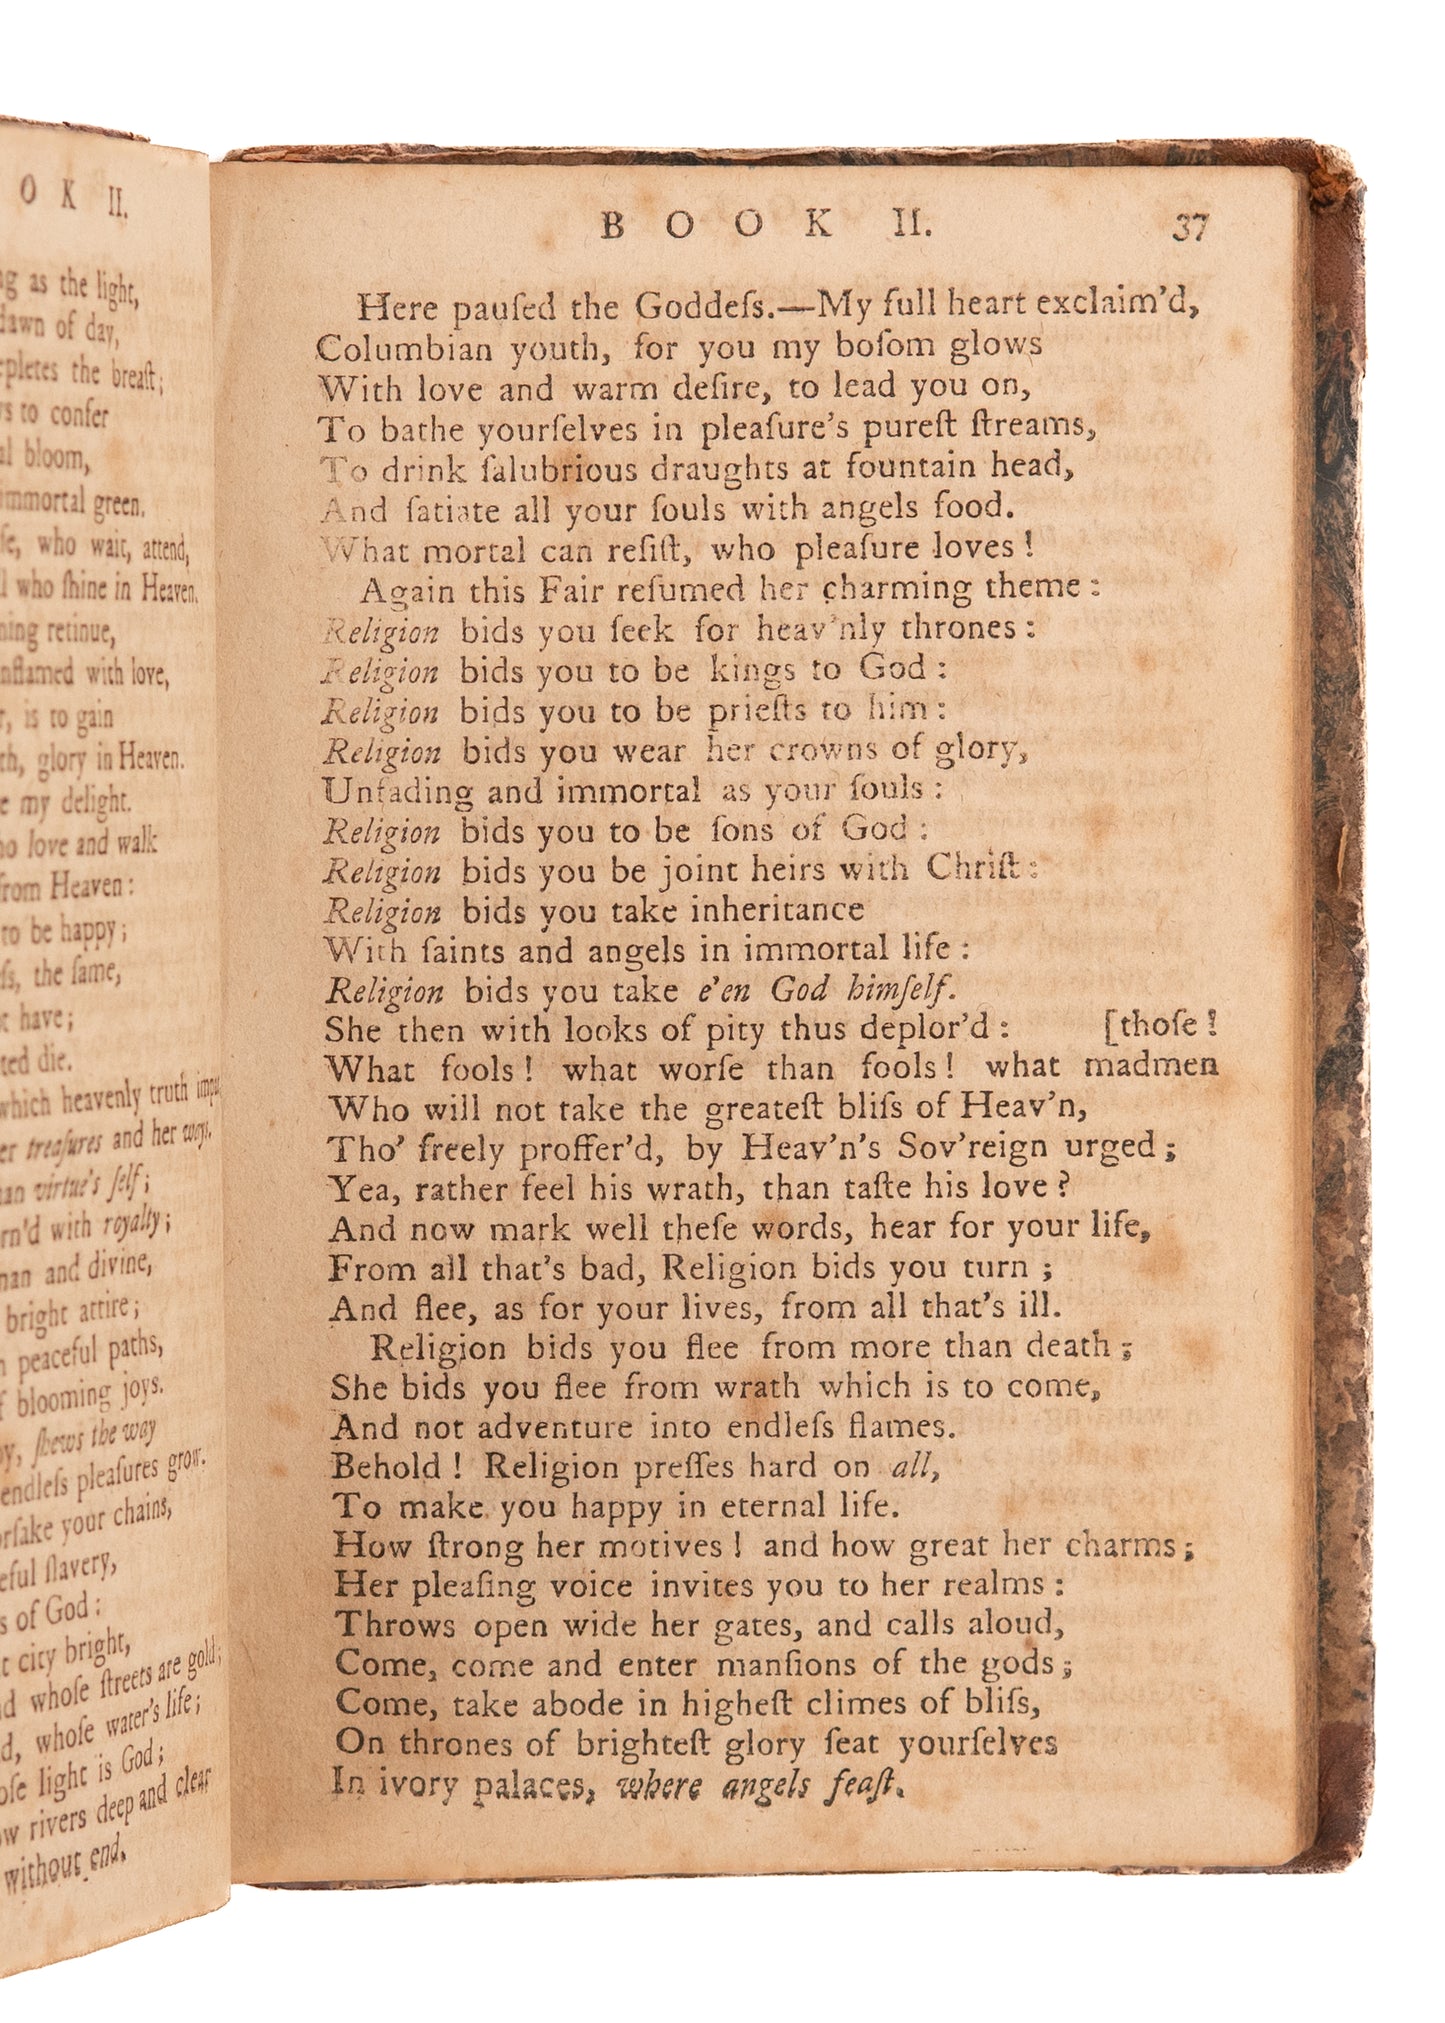 O K II.
g as the light,
dawn of day,
pletes the breaſt;
s to confer
al bloom,
immortal green.
ſe, who wait, attend,
l who ſhine in Heaven.
ning retinue,
nflamed with love,
r, is to gain
th, glory in Heaven.
e my delight.
ho love and walk
from Heaven:
to be happy;
ſs, the ſame,
t have;
ted die.
which heavenly truth
er treaſures and her ways.
an virtue's ſelf;
rn'd with royalty;
nan and divine,
bright attire;
n peaceful paths,
f blooming joys.
y, ſhews the way
endleſs pleaſures grow.
orſake your chains,
eful ſlavery,
s of God:
t city bright,
d whoſe ſtreets are gold;
d, whoſe water's life;
oſe light is God;
w rivers deep and clear
without end.
BOOK II. 37
Here pauſed the Goddeſs.—My full heart exclaim'd,
Columbian youth, for you my boſom glows
With love and warm deſire, to lead you on,
To bathe yourſelves in pleaſure's pureſt ſtreams,
To drink ſalubrious draughts at fountain head,
And ſatiate all your ſouls with angels food.
What mortal can reſiſt, who pleaſure loves!
Again this Fair reſumed her charming theme:
Religion bids you ſeek for heav'nly thrones:
Religion bids you to be kings to God:
Religion bids you to be prieſts to him:
Religion bids you wear her crowns of glory,
Unfading and immortal as your ſouls:
Religion bids you to be ſons of God:
Religion bids you be joint heirs with Chriſt:
Religion bids you take inheritance
With ſaints and angels in immortal life:
Religion bids you take e'en God himſelf.
She then with looks of pity thus deplor'd: [thoſe!
What fools! what worſe than fools! what madmen
Who will not take the greateſt bliſs of Heav'n,
Tho' freely proffer'd, by Heav'n's Sov'reign urged;
Yea, rather feel his wrath, than taſte his love?
And now mark well theſe words, hear for your life,
From all that's bad, Religion bids you turn;
And flee, as for your lives, from all that's ill.
Religion bids you flee from more than death;
She bids you flee from wrath which is to come,
And not adventure into endleſs flames.
Behold! Religion preſſes hard on all,
To make you happy in eternal life.
How ſtrong her motives! and how great her charms;
Her pleaſing voice invites you to her realms:
Throws open wide her gates, and calls aloud,
Come, come and enter manſions of the gods;
Come, take abode in higheſt climes of bliſs,
On thrones of brighteſt glory ſeat yourſelves
In ivory palaces, where angels feaſt.